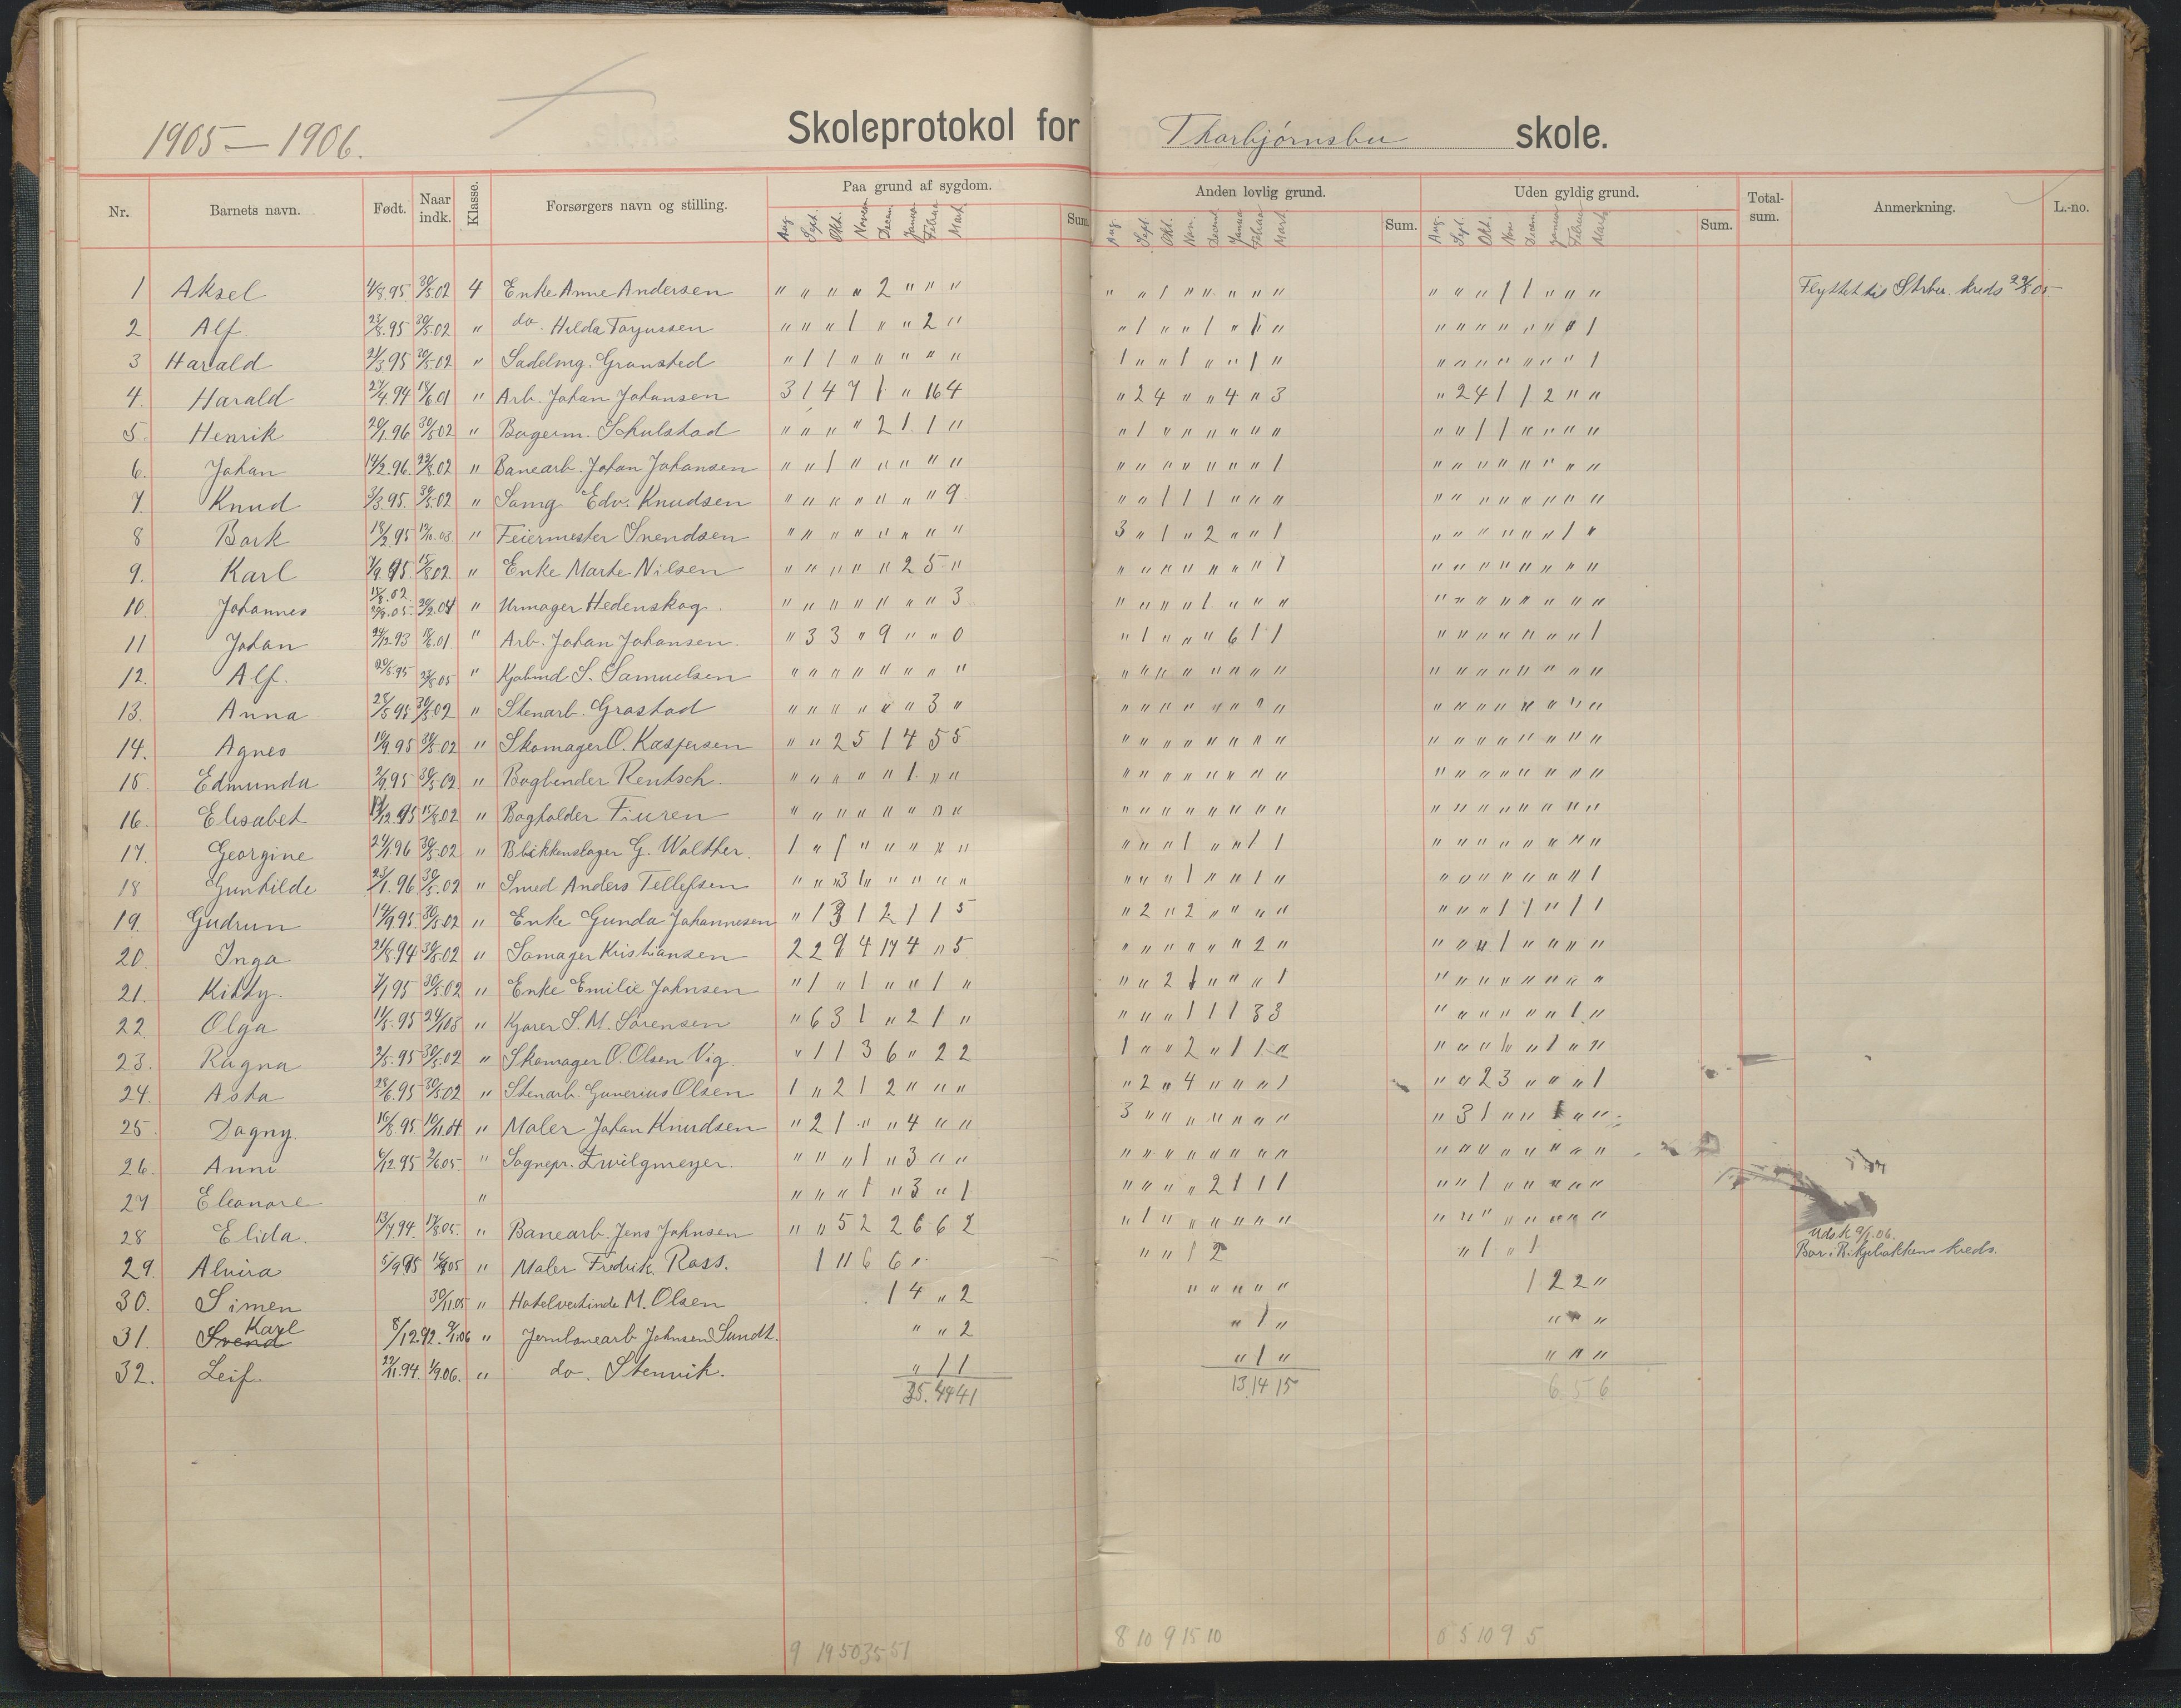 1905 — 1906.
Skoleprotokol for Thorbjørnsbu skole.
Nr. Barnets navn. Født. Naar indk. Klasse. Forsørgers navn og stilling. Paa grund af sygdom. Sum Anden lovlig grund. Sum. Uden gyldig grund. Sum. Total-sum. Anmerkning. L.-no.
Aug. Sept. Okt. Novem Decem. Janua Februa Mart. Aug. Sept. Okt. Nov. Decemb Janua Februa Mart. Aug. Sept. Okt. Nov. Decem Janua Februa Marts
1 Aksel 4/8.95 30/5.02 4 Enke Anne Andersen " " " " 2 " " " " " 1 " " " " " " " " 1 1 " " "
2 Alf 30/5.02 " do. Hilda Torjussen " " " 1 " " 2 " " 1 " " 1 " 1 "
3 Harald 30/5.02 " Sadelmg. Gransted " 1 1 " " " " " 1 " " 1 " " 1 " " " " " " " " 1
4. Harald 27/4.94 18/6.01 " Arb. Johan Johansen 3 1 4 7 1 " 16 4 " 2 4 " " 4 " 3 " 2 4 1 1 2 " "
5. Henrik 20/1.96 30/5.02 " Bagerm. Schulstad " " " " 2 1 1 " " 1 " " " " " " " " 1 1 " " " "
6. Johan 14/2.96. " Banearb. Johan Johansen " " 1 " " " " " " " " " " " " 1 " " " " " " " "
7. Knud 3/3.95. 30/5.02 " Edv. Knudsen " " " " " " " 9 " " 1 1 1 " " " " " " " " " " "
8 Bark 18/2.95 " Feiermester Svendsen " " " " " " " " 3 " 1 " 2 " " 1 " " " " " " 1 "
9. Karl 15/8.02 " Enke Marte Nilsen " " " " " 2 5 " " " " " " " " 1 " " " " " " " "
10. Johannes " Urmager Hedenskog. " " " " " " " 3 " " " " 1 " " " " " " " " " " "
11 Johan " Arb. Johan Johansen. " 3 3 " 9 " " 0 " 1 " " " 6 1 1 " " " " " " " 1
12. Alf. " S. Samuelsen " " " " " " " " " " " " " " " " " " " " " " " "
13. Anna 30/5.02 " Stenarb. Grastad " " " " " " 3 " " " " " " " " " " " " " " " " "
14. Agnes 30/5.02 " Skomager O. Kaspersen " " 2 5 1 4 5 5 " " " " " " " " " " " " " " " "
15 Edmunda 2/9.95 30/5.02 " Bogbinder Rentsch. " " " " " 1 " " " " " " " " " " " " " " " " " "
16. Elisabet 15/8.02 " Bogholder Fiuren " " " " " " " " " " " " " " " " " " " " " " " "
17. Georgine 24/1.96 30/5.02 " Blikkenslager G. Walther. 1 " 1 " " " " " " " " 1 " " 1 1 " " " " " " " "
18 Gunhilde 23/1.96 30/5.02 " Smed Anders Tellefsen " " 3 1 " " " " " " " 1 " " 1 " " " " " " " " 1
19. Gudrun 14/9.95. 30/5.02 " Enke Gunda Johannesen " 1 3 1 2 1 1 5 " 2 " 2 " " " " " " " 1 1 " 1 1
20. Inga 30/5.02 " Somager Kristiansen 2 2 9 4 17 4 " 5 " " " " " " 2 " " " " 1 " " " "
21. Kitty. 7/1.95 30/5.02 " Enke Emilie Johnsen " 1 " 1 " " 1 " " " 2 1 " " " 1 " " " " " " " "
22. Olga " Kjører S. M. Sørensen " 6 3 1 " 2 1 " " " " 1 1 1 3 3 " " " " " " 1 "
23. Ragna 2/5.95 30/5.02 " Skomager O. Olsen Vig. " 1 1 3 6 " 2 2 1 " " 2 " 1 1 " " " " 1 " 1 " "
24. Asta 28/6.95 30/5.02 " Stenarb. Gunerius Olsen 1 " 2 1 2 " " " " 2 " 4 " " " 1 " " 2 3 " " " 1
25 Dagny. " Maler Johan Knudsen " 2 1 " " 4 " " 3 " " " " " " " " 3 1 " " 1 " "
26. Anni 2/6.05. " Sognepr. Zwilgmeyer. " " " 1 " 3 " " " " " " " " " " " " " " " " " "
27 Eleanore " " " " 1 " 3 " 1 " " " " 2 1 1 1 " " 1 " " " " "
28 Elida. 13/7.94. 17/8.05. " Banearb. Jens Johnsen " " 5 2 2 6 6 2 " 1 " " " " " " " " " " " " " "
29. Alvira 5/9.95 " Maler Fredrik Rass. 1 " 6 6 " " " 1 2 " 1 " 1
30. Simen 30/11.05 " Hotelvertinde M. Olsen 1 4 " 2 " " " " " 1 2 2 "
31. Svend Karl 8/12.92. 9/1.06 " Jernbanearb Johnsen Sundt. " " 2 " 1 " " " "
32. Leif. 22/11.94. " do. Stenvik. " 1 1 " 1 " " " "
35. 44 41 13 14 15 6 5 6
Flyttet til kreds
Uds.k 9/1.06.
Bor i kreds.
9 19 50 35 51 8 10 9 15 10 0 5 10 9 5